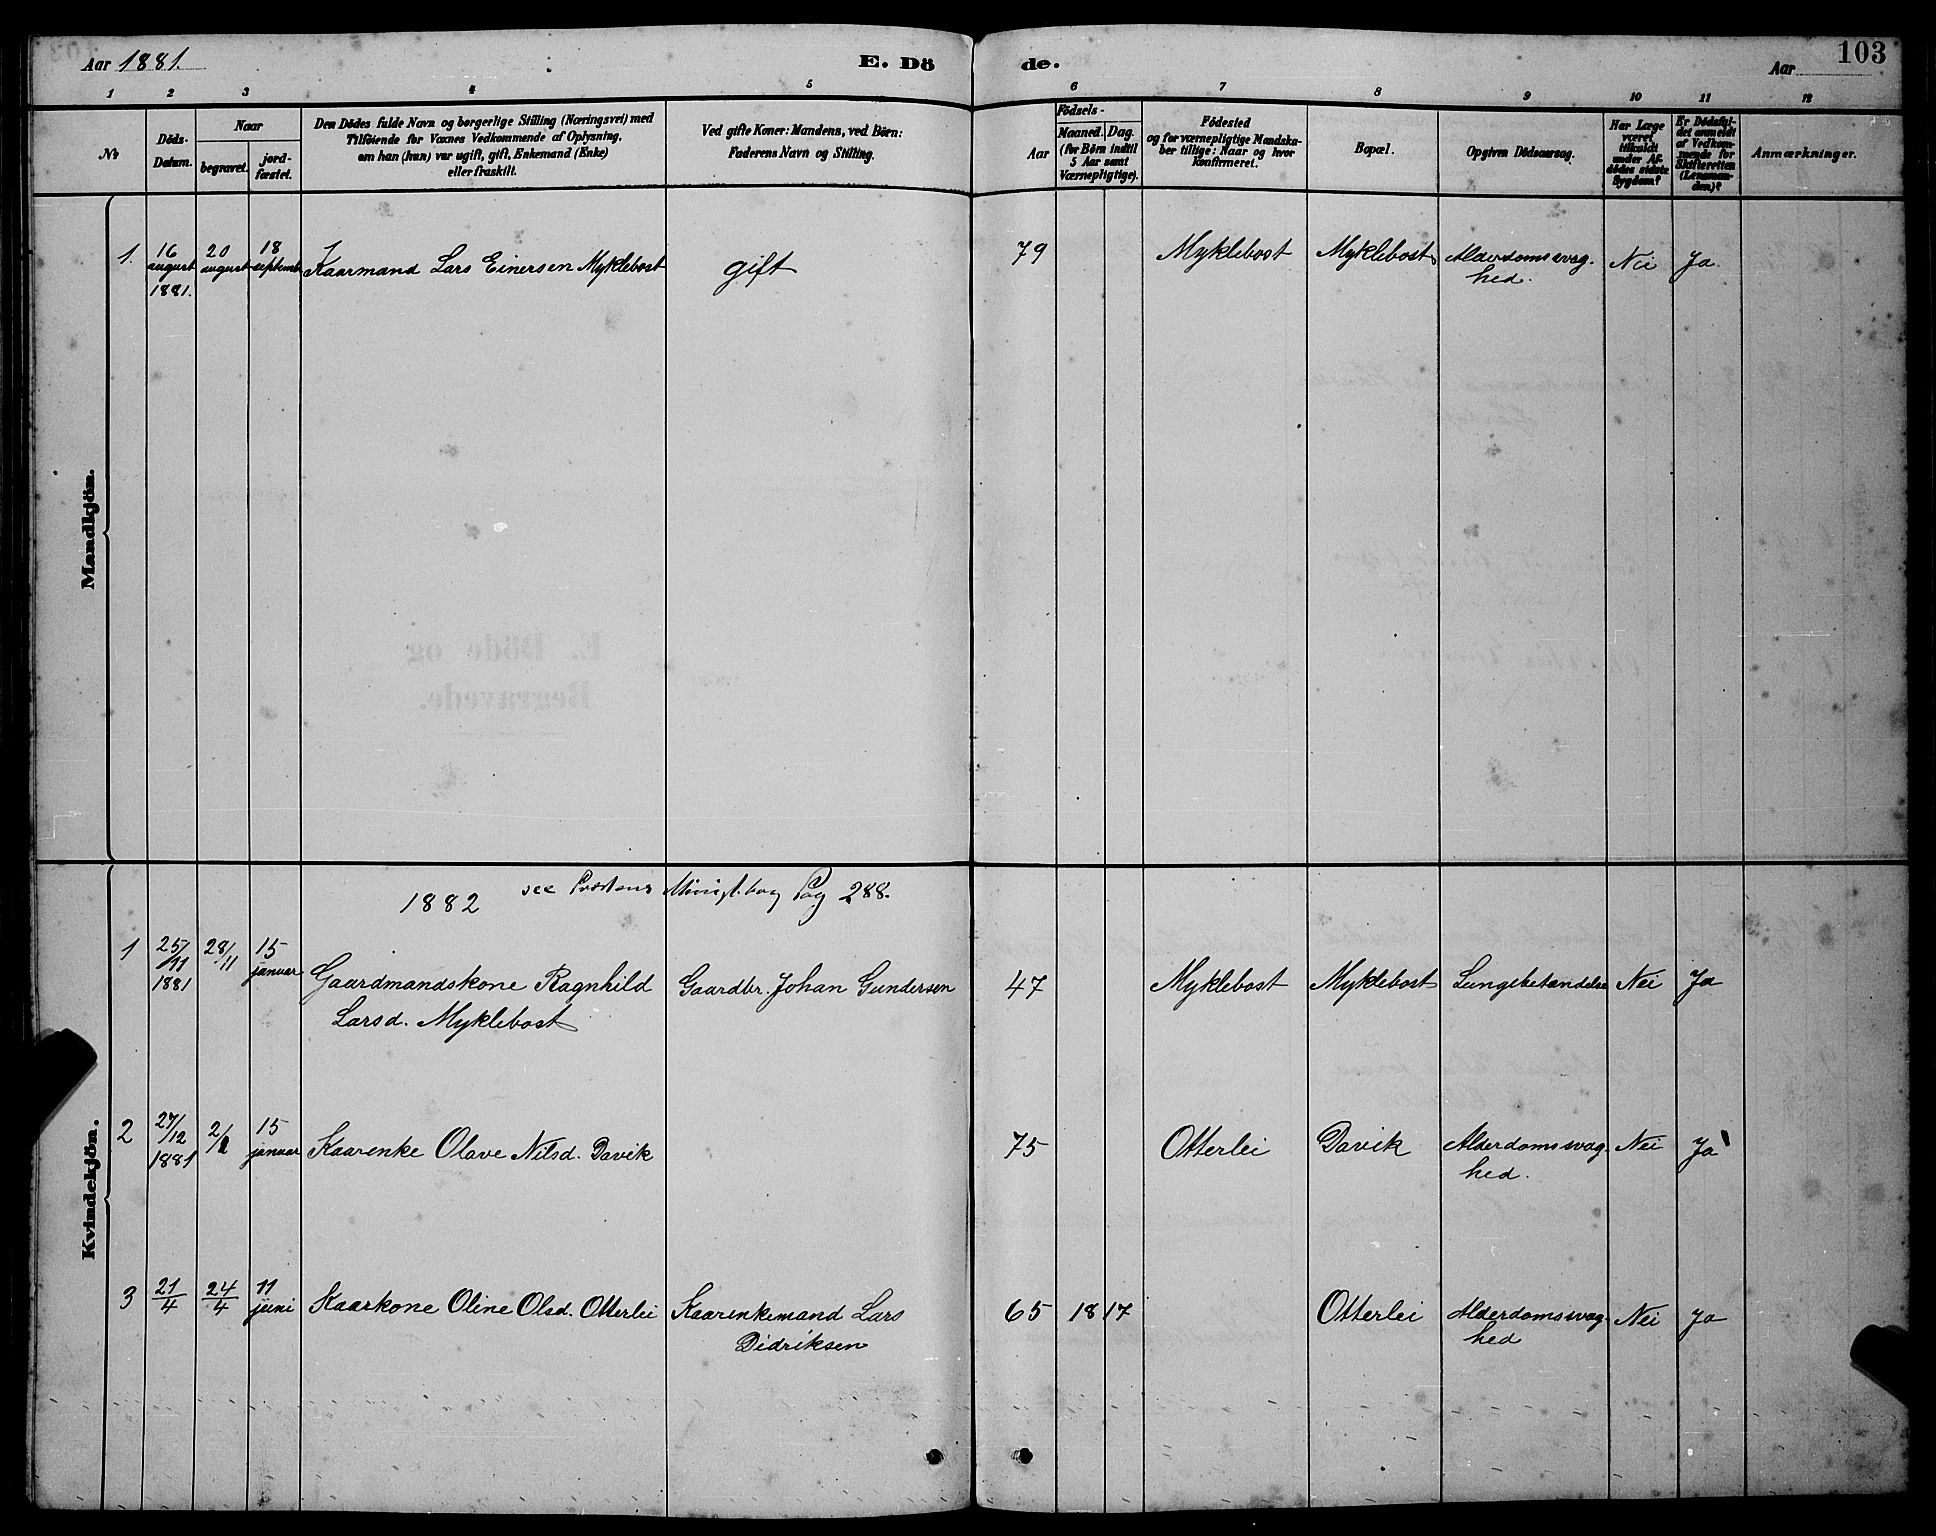 Aar 1881.
E. Dö de.
103
Aar
1 2 3 4 5 6 7 8 9 10 11 12
No
Döds-
Datum.
Naar
begravet.
jord-
fæstet.
Den Dödes fulde Navn og borgerlige Stilling (Næringsvei) med
Tilföiende for Voxnes Vedkommende af Oplysning,
om han (hun) var ugift, gift, Enkemand (Enke)
eller fraskilt.
Ved gifte Koner: Mandens, ved Börn:
Faderens Navn og Stilling.
Födsels-
Aar
Maaned. Dag.
(for Börn indtil
5 Aar samt
Værnepligtige).
Födested
og for værnepligtige Mandska-
ber tillige: Naar og hvor
Konfirmeret.
Bopæl.
Opgiven Dödsaarsag.
Har Læge
været
tilkaldt
under Af-
dödes sidste
Sygdom?
Er Dödsfal-
det anmeldt
af Vedkom-
mende for
Skifteretten
(Lensman-
den)?
Anmærkninger.
Mandkjön.
1. 16 20 18
august august septemb Kaarmand Lars Einersen Myklebost gift 79 Myklebost Myklebost Alderdomssvag- Nei Ja
1881. hed.
1882 see Præstens Minist.bog Pag 288.
Kvindekjön.
1 25/11 28/11 15
1881 januar Gaardmandskone Ragnhild Gaardbr. Johan Gundersen 47 Myklebost Myklebost Lungebetændelse Nei Ja
Larsd. Myklebost
2 27/12 2/1 15
1881 januar Kaarenke Olave Nilsd. Davik 75 Otterlei Davik Alderdomssvag- Nei Ja
hed.
3 21/4 24/4 11
juni Kaarkone Oline Olsd. Otterlei Kaarenkemand Lars 65 1817 Otterlei Alderdomssvag- Nei Ja
Didriksen hed
E. Döde og
Begravede.